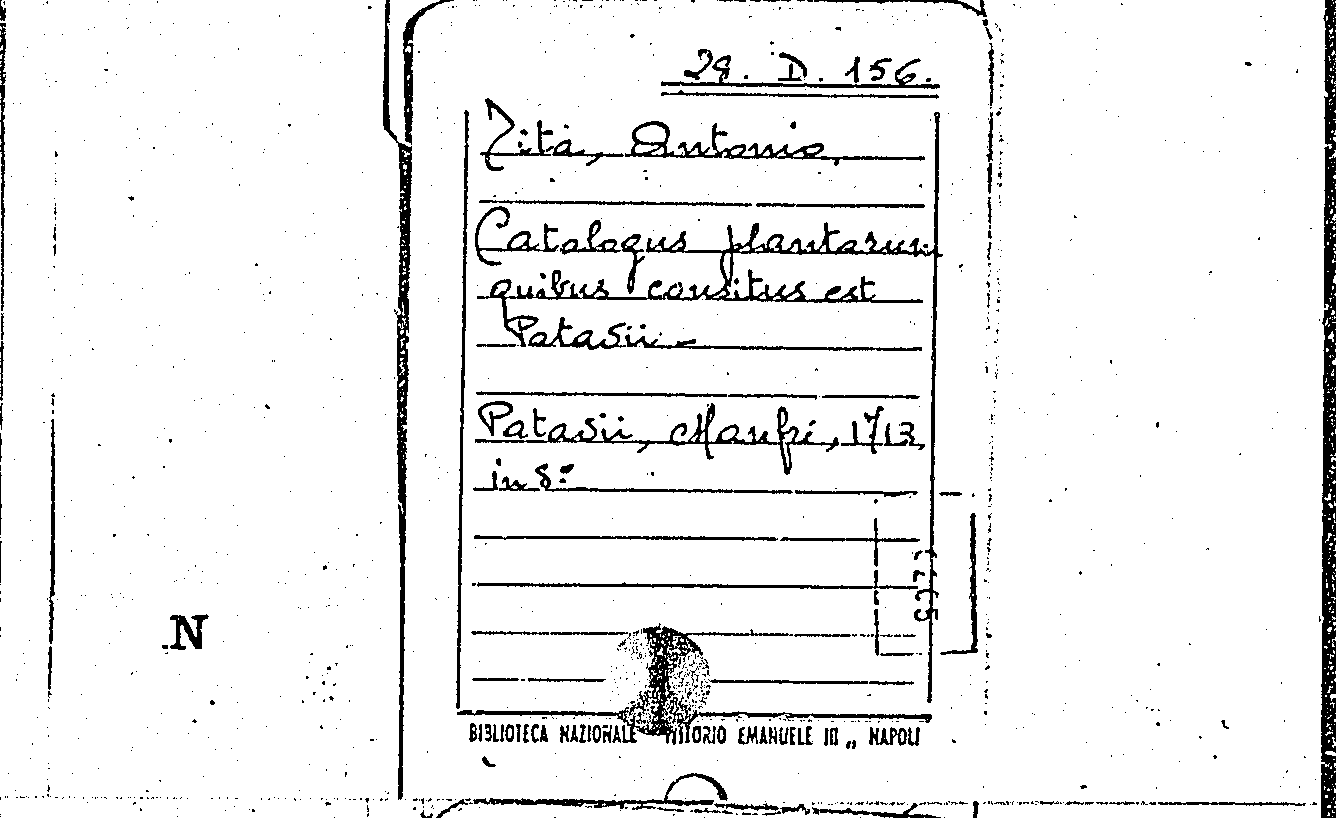 28. D. 156.
Zita, Antonio,
Catalogus plantarum
quibus consitus est
Patasii -
Patasii, Manfrè, 1713,
in 8º
N
BIBLIOTECA NAZIONALE VITTORIO EMANUELE III „ NAPOLI